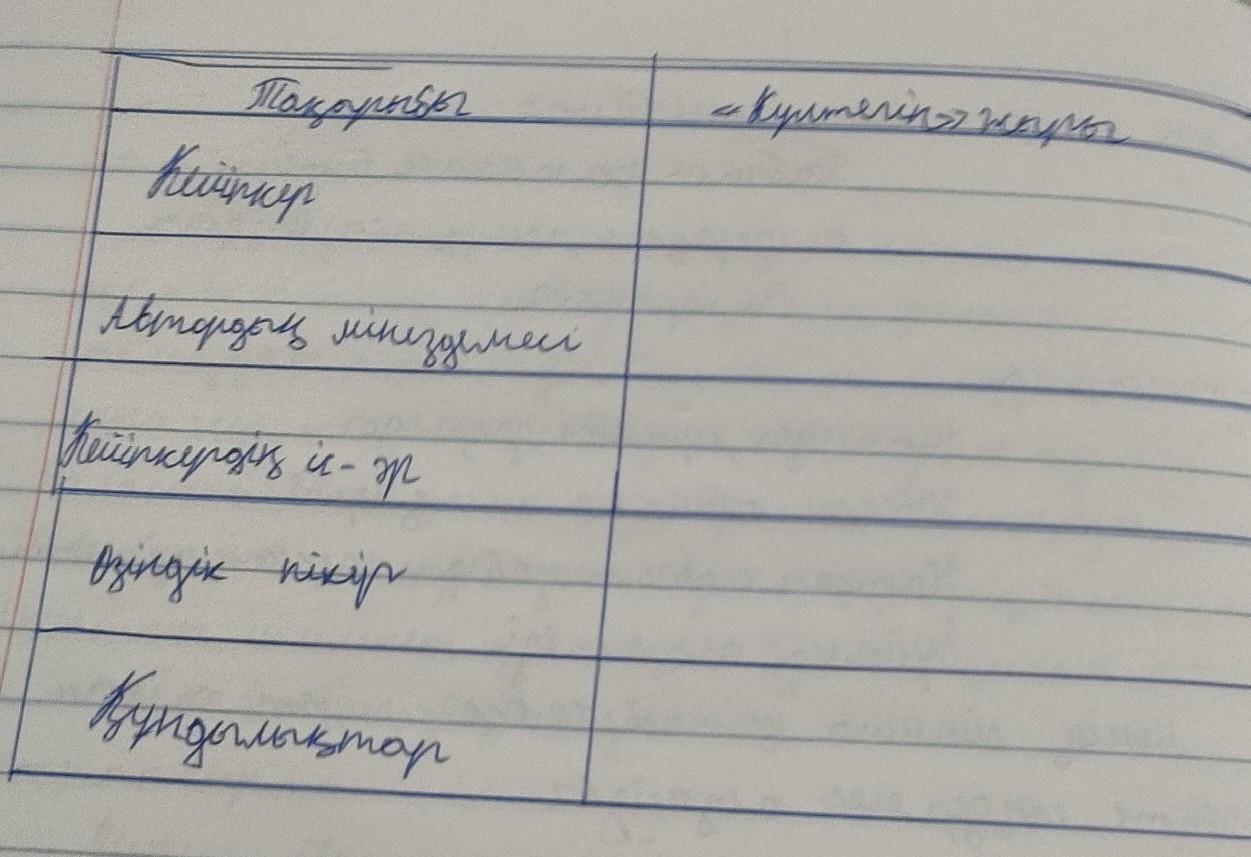 Тақырыбы «Күлтегін» жыры
Кейіпкер
Автордың мінездемесі
Кейіпкердің іс-әр
Өзіндік пікір
Құндылықтар